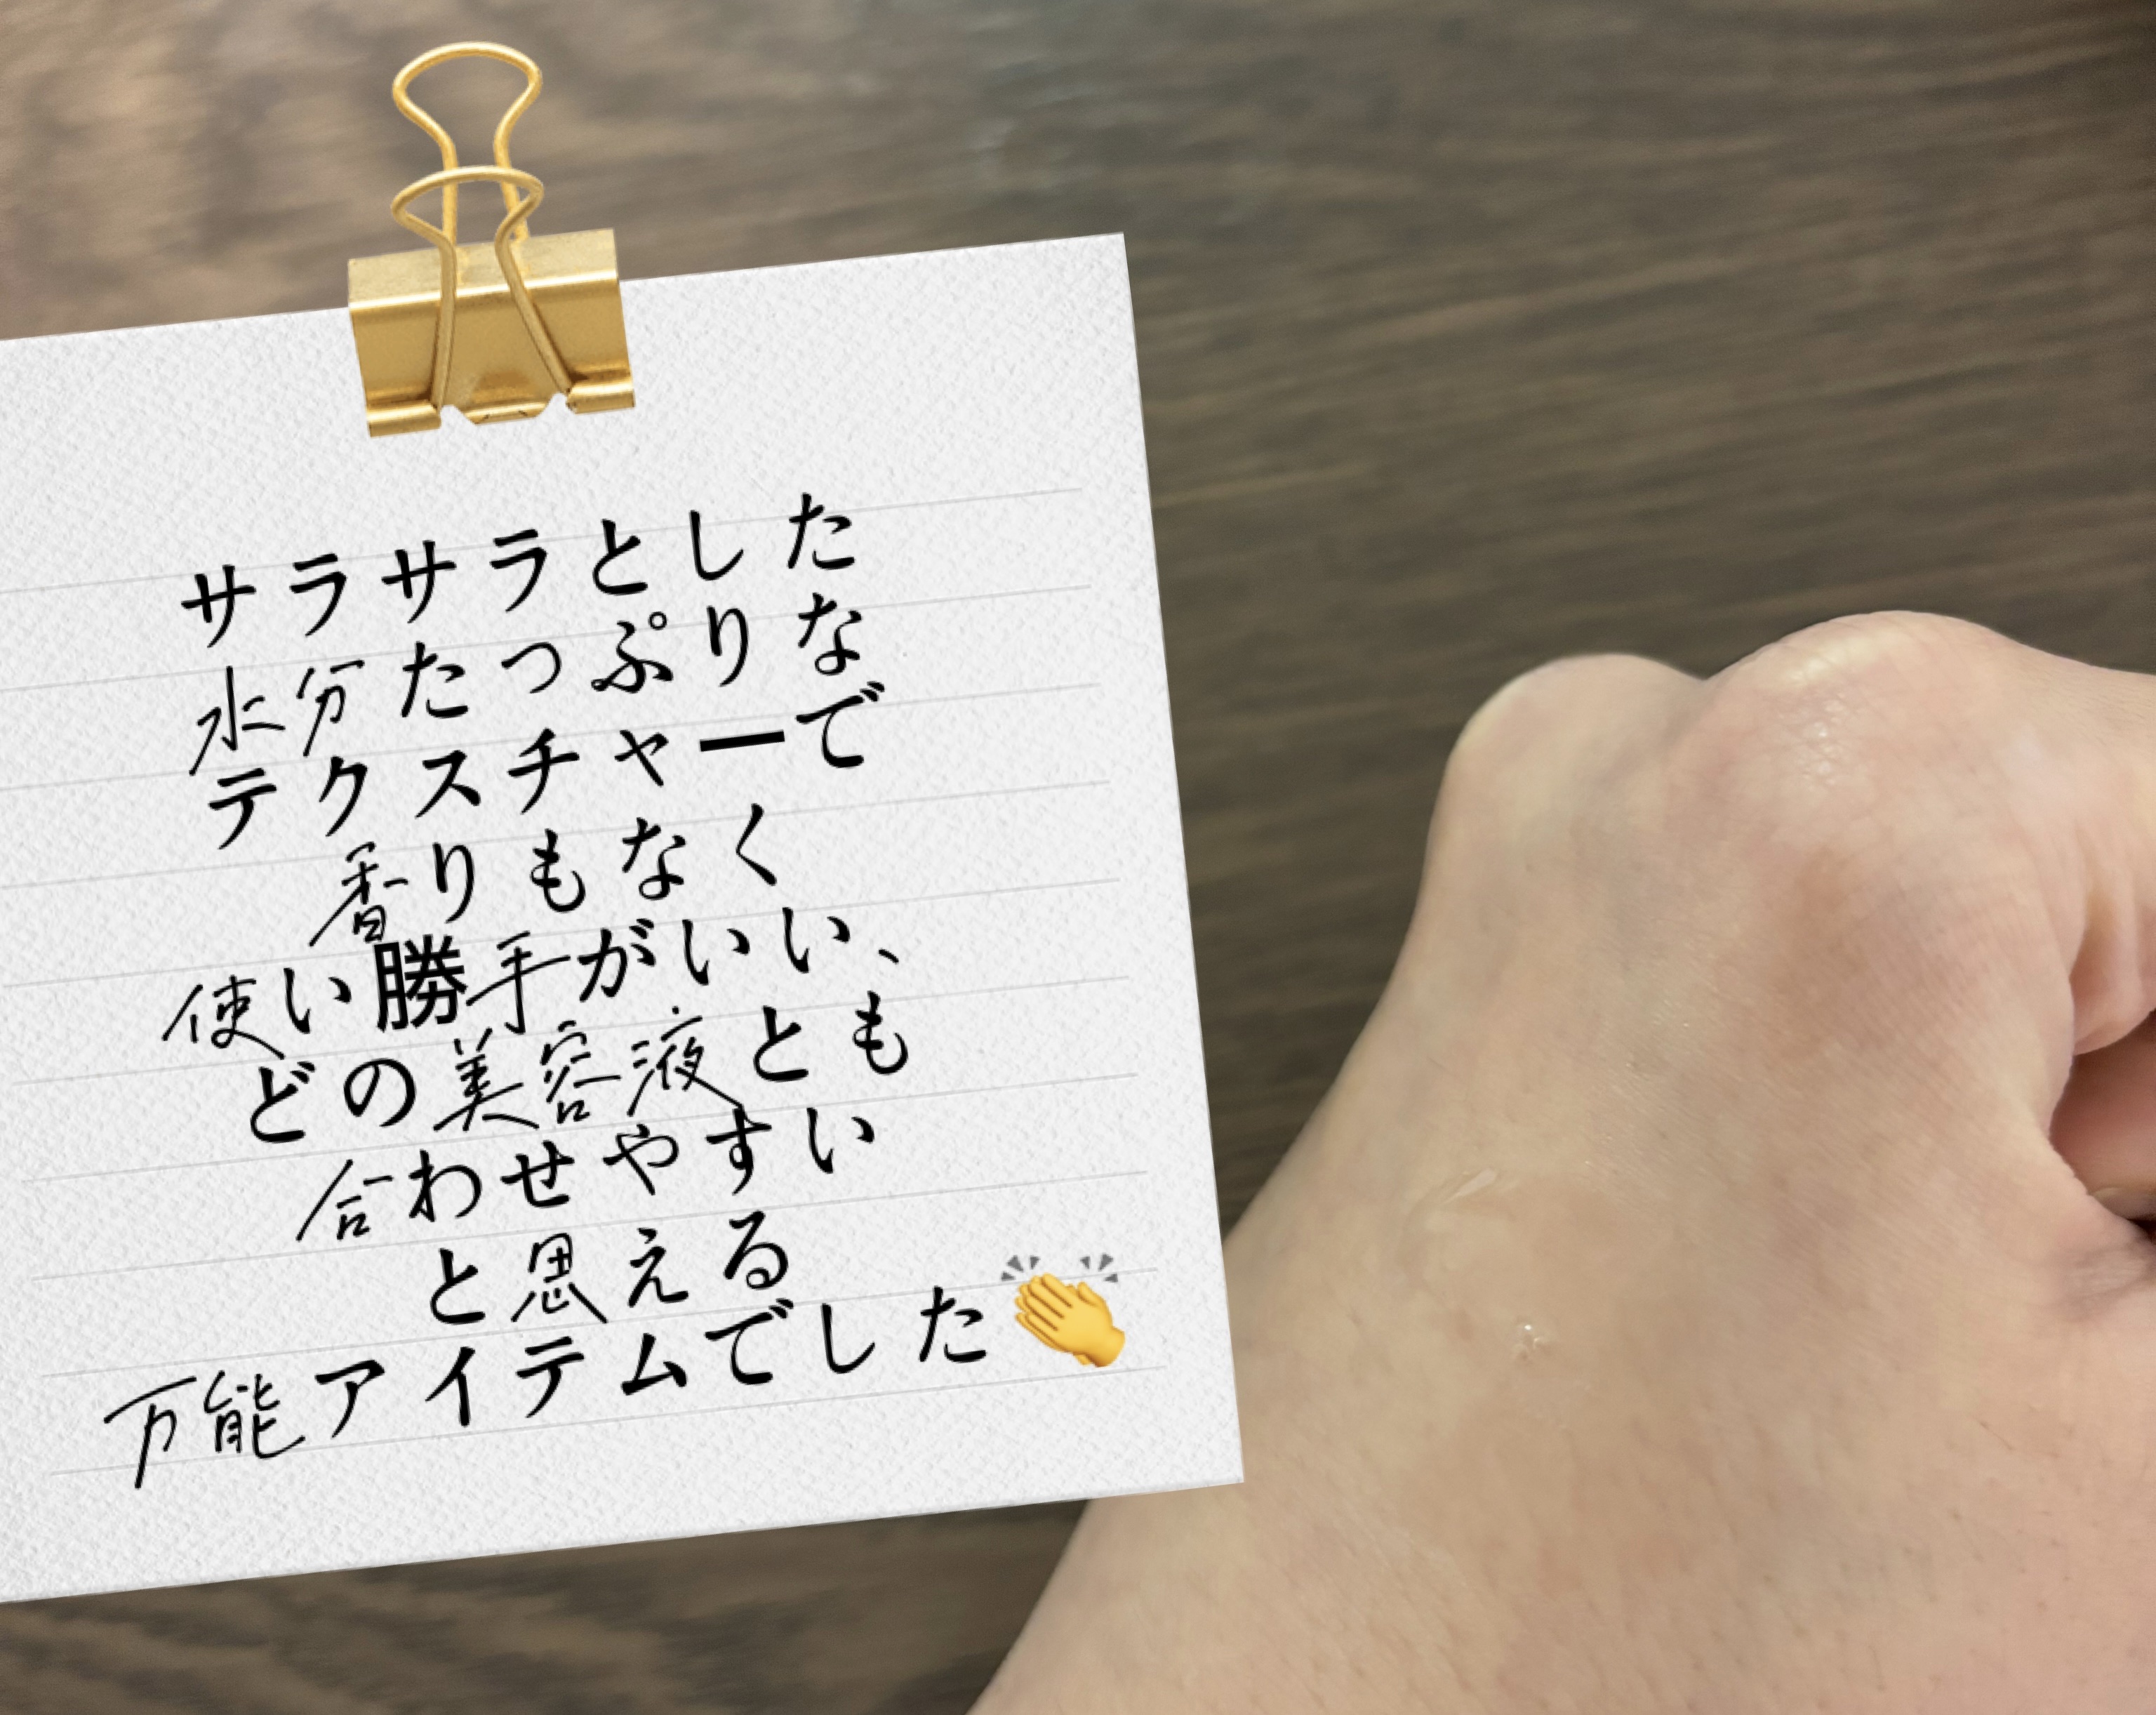 サラサラとした
水分たっぷりな
テクスチャーで
香りもなく
使い勝手がいい、
どの美容液とも
合わせやすい
と思える
万能アイテムでした👏